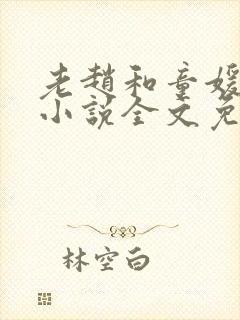 老赵和童媛
小说全文免
林空白